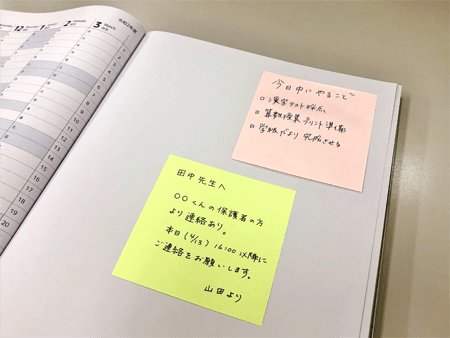 12
1
2
3 March
今日中にやること
□ 漢字テスト採点
□ 算数授業プリント準備
□ 学級だより完成させる
田中先生へ
○○くんの保護者の方
より連絡あり。
本日(4/13) 16:00以降に
ご連絡をお願いします。
山田より